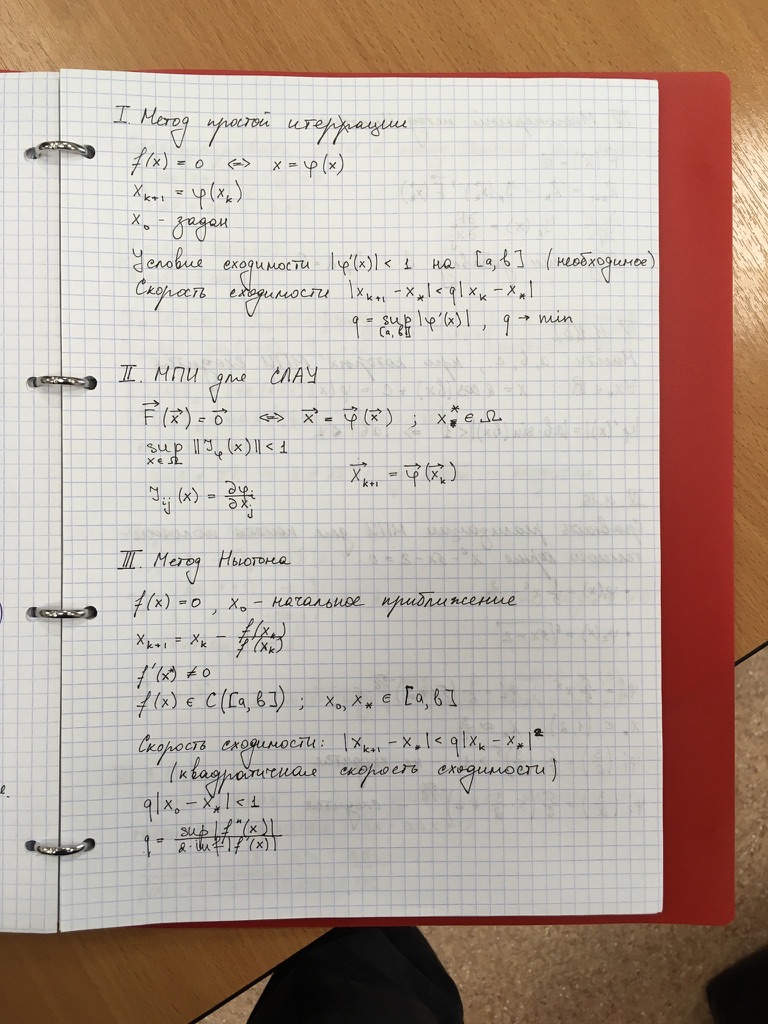 I. Метод простой итеррации
f(x) = 0 <=> x = φ(x)
x_{k+1} = φ(x_k)
x_0 - задан
Условие сходимости |φ'(x)| < 1 на [a, b] (необходимое)
Скорость сходимости |x_{k+1} - x_*| < q|x_k - x_*|
q = sup_{[a,b]} |φ'(x)|, q → min
II. МПИ для СЛАУ
F⃗(x⃗) = 0⃗ <=> x⃗ = φ⃗(x⃗) ; x^* ∈ Ω
sup_{x∈Ω} ||J_φ(x)|| < 1
x⃗_{k+1} = φ⃗(x⃗_k)
J_{ij}(x) = ∂φ_i/∂x_j
III. Метод Ньютона
f(x) = 0, x_0 - начальное приближение
x_{k+1} = x_k - f(x_k)/f'(x_k)
f'(x^*) ≠ 0
f(x) ∈ C([a, b]) ; x_0, x_* ∈ [a, b]
Скорость сходимости: |x_{k+1} - x_*| < q|x_k - x_*|^2
(квадратичная скорость сходимости)
q|x_0 - x_*| < 1
q = sup|f''(x)| / 2·inf|f'(x)|